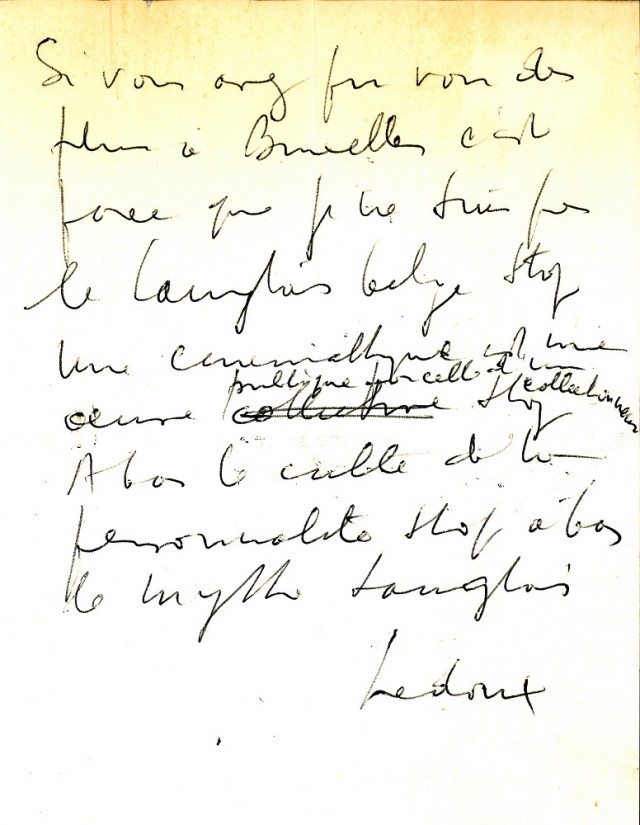 Si vous avez pu voir des
films à Bruxelles c'est
parce que je ne suis pas
le Langlois belge Stop
Une cinémathèque est une
publique pas celle d'un collectionneur
oeuvre collective Stop
A bas le culte de la
personnalité Stop à bas
le mythe Langlois
Ledoux